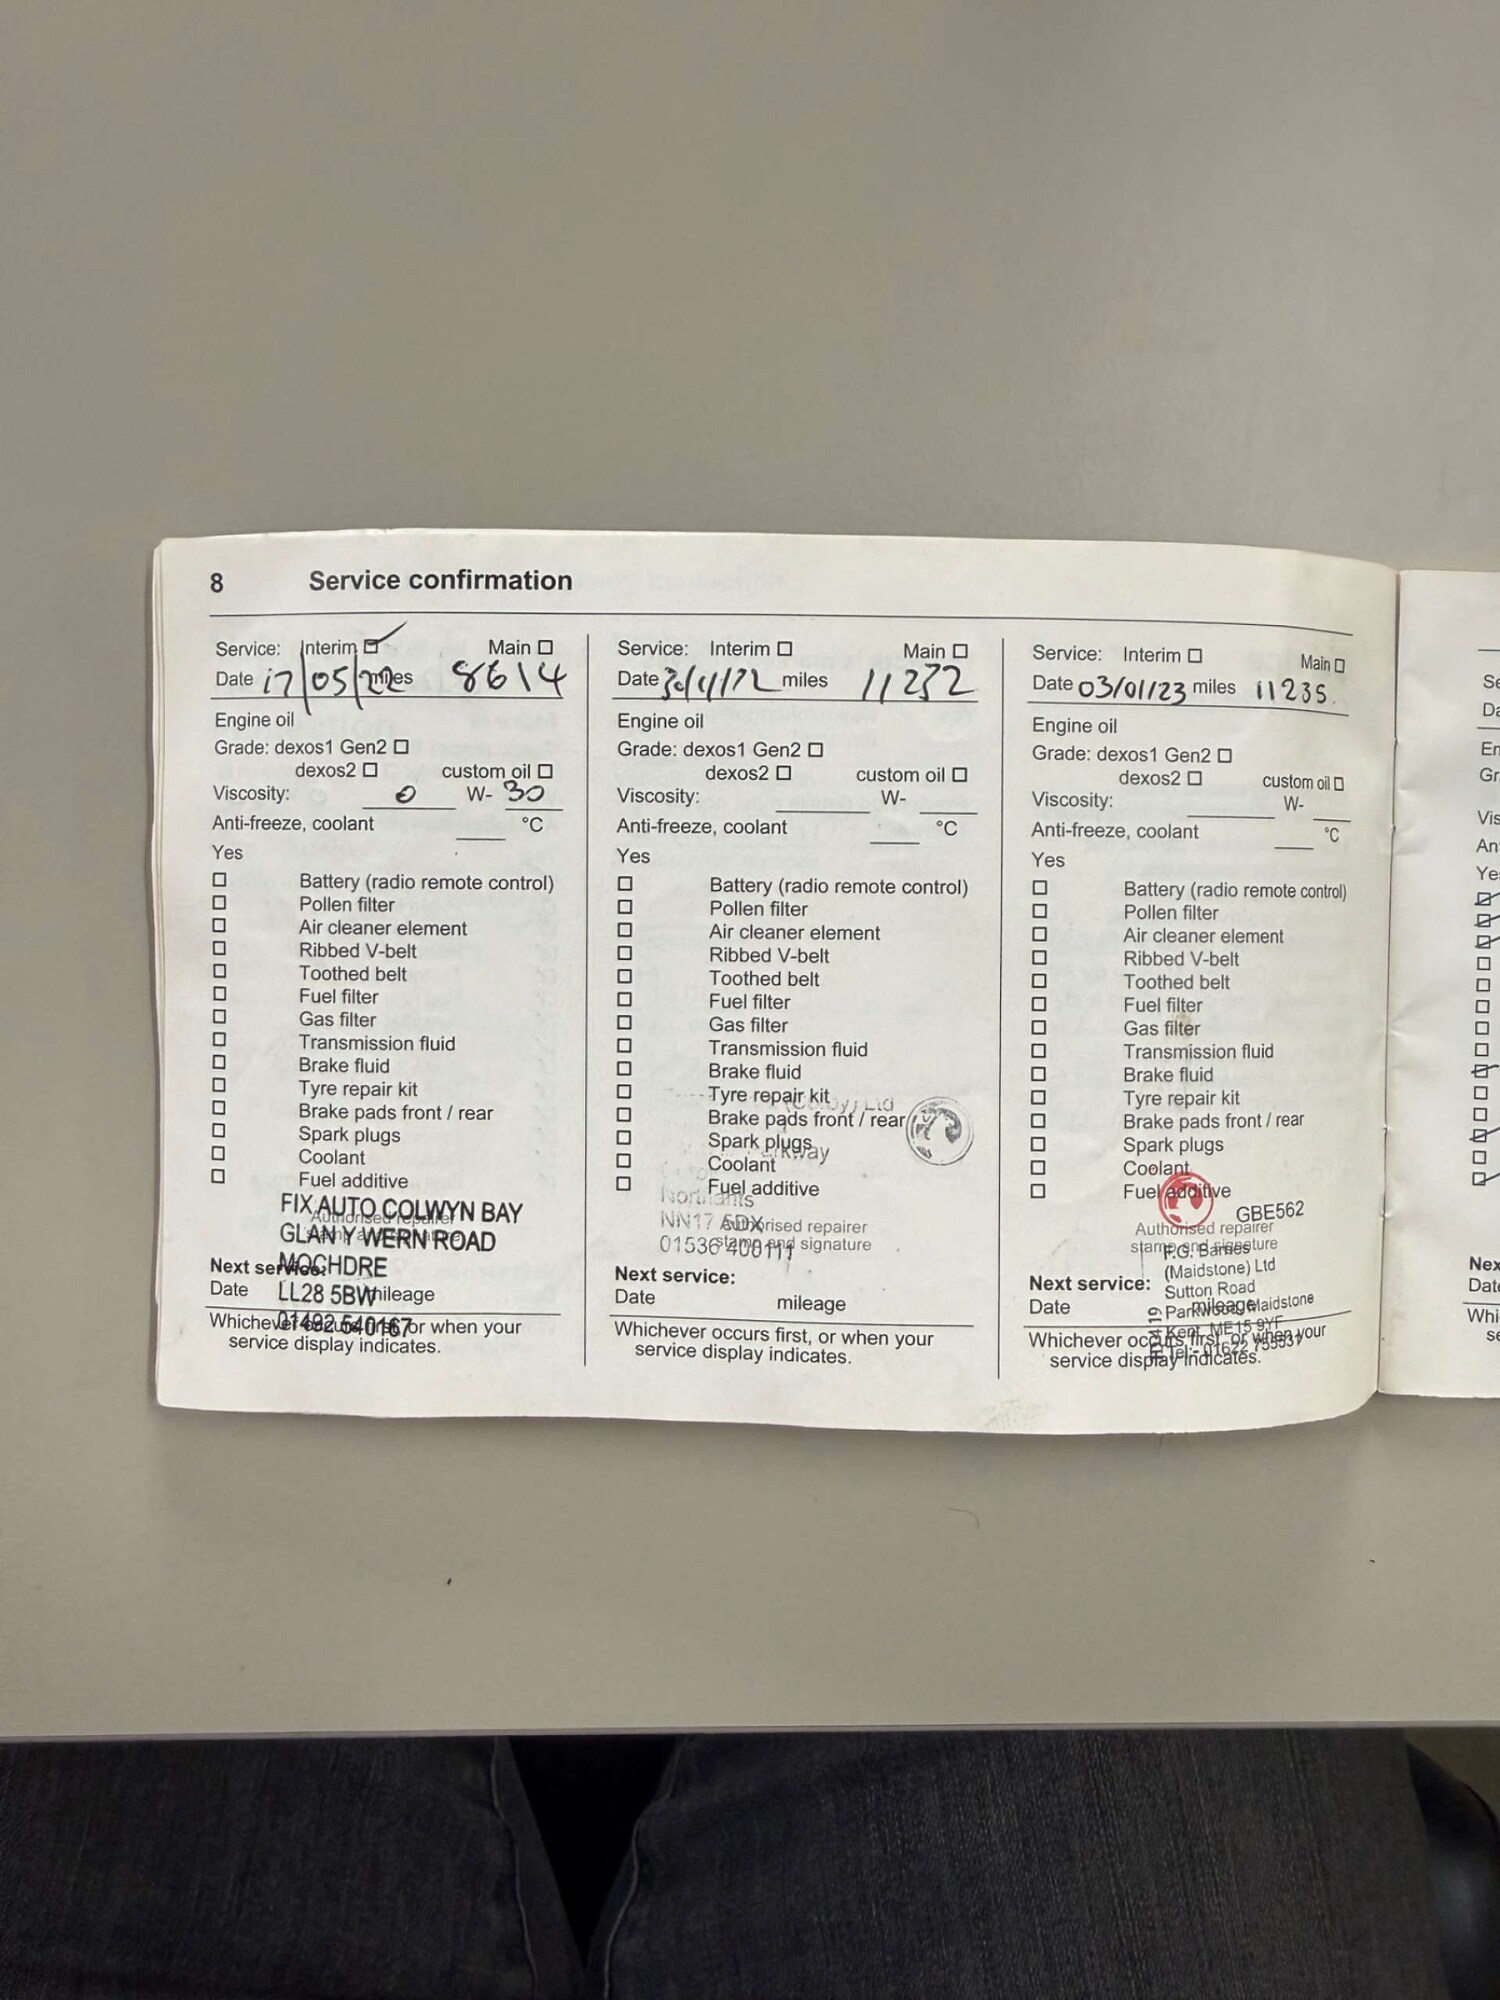 8 Service confirmation
Service: Interim Main
Date 17/05/22 miles 8614
Engine oil
Grade: dexos1 Gen2
dexos2 custom oil
Viscosity: 0 W- 30
Anti-freeze, coolant °C
Yes
Battery (radio remote control)
Pollen filter
Air cleaner element
Ribbed V-belt
Toothed belt
Fuel filter
Gas filter
Transmission fluid
Brake fluid
Tyre repair kit
Brake pads front / rear
Spark plugs
Coolant
Fuel additive
FIX AUTO COLWYN BAY
Authorised repairer
GLAN Y WERN ROAD
MOCHDRE
Next service:
LL28 5BW
Date mileage
01492 540167
Whichever occurs first, or when your
service display indicates.
Service: Interim Main
Date miles 11232
Engine oil
Grade: dexos1 Gen2
dexos2 custom oil
Viscosity: W-
Anti-freeze, coolant °C
Yes
Battery (radio remote control)
Pollen filter
Air cleaner element
Ribbed V-belt
Toothed belt
Fuel filter
Gas filter
Transmission fluid
Brake fluid
Tyre repair kit
Ltd
Brake pads front / rear
Spark plugs
Coolant
Fuel additive
Northants
NN17 5DX
Authorised repairer
01536 400111
stamp and signature
Next service:
Date mileage
Whichever occurs first, or when your
service display indicates.
Service: Interim Main
Date 03/01/23 miles 11235
Engine oil
Grade: dexos1 Gen2
dexos2 custom oil
Viscosity: W-
Anti-freeze, coolant °C
Yes
Battery (radio remote control)
Pollen filter
Air cleaner element
Ribbed V-belt
Toothed belt
Fuel filter
Gas filter
Transmission fluid
Brake fluid
Tyre repair kit
Brake pads front / rear
Spark plugs
Coolant
Fuel additive
GBE562
Authorised repairer
stamp and signature
F.G. Barnes
(Maidstone) Ltd
Sutton Road
Parkwood, Maidstone
Kent, ME15 9YF
Tel:- 01622 755531
Next service:
Date mileage
Whichever occurs first, or when your
service display indicates.